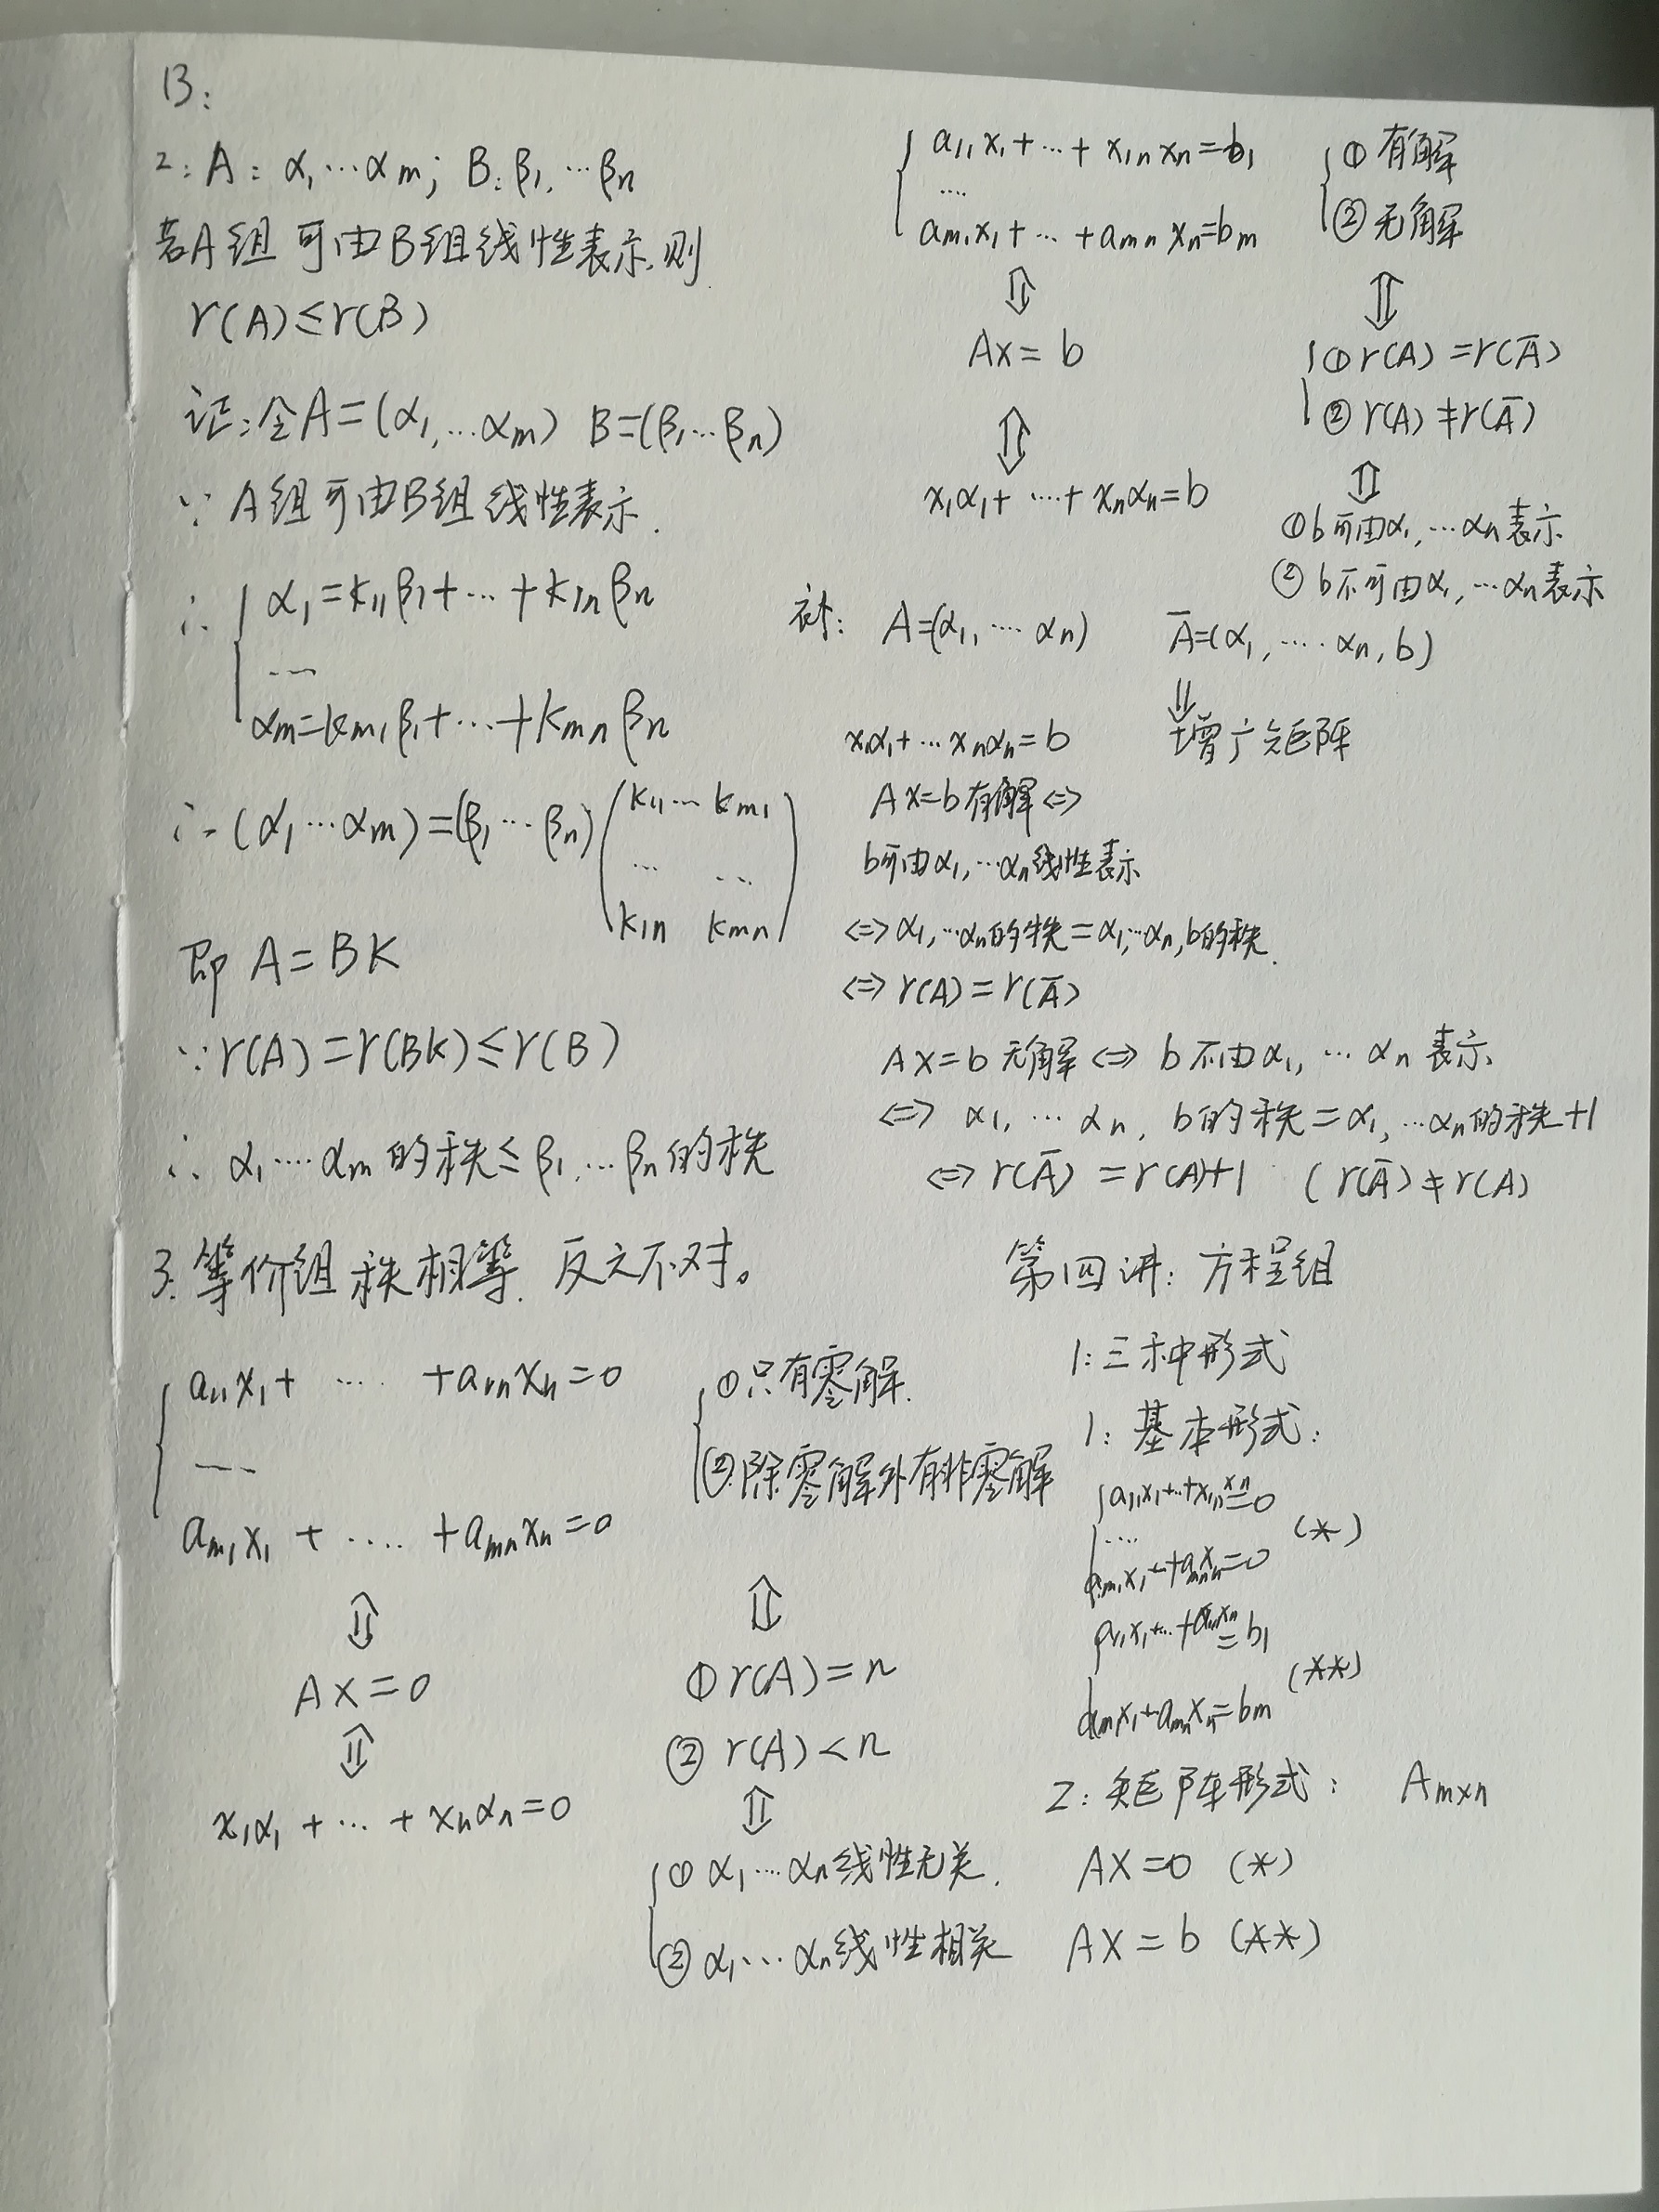 13:
2: A: α₁…αm; B: β₁,…βn
若A组可由B组线性表示,则
r(A)≤r(B)
证:全A=(α₁,…αm) B=(β₁…βn)
∵ A组可由B组线性表示.
∴ { α₁=k₁₁β₁+…+k₁nβn
…
αm=km₁β₁+…+kmnβn
∴ (α₁…αm)=(β₁…βn)(k₁₁… km₁
… …
k₁n kmn)
即 A=BK
∵r(A)=r(BK)≤r(B)
∴ α₁…αm的秩≤β₁,…βn的秩
3.等价组秩相等.反之不对。
{ a₁₁x₁+ …. +a₁nxn=0
…
am₁x₁ + …. +amnxn=0
⇕
AX=0
⇕
x₁α₁ + … + xnαn=0
{ ①只有零解.
②除零解外有非零解
⇕
①r(A)=n
② r(A)<n
⇕
{ ① α₁…αn线性无关.
② α₁…αn线性相关
{ a₁₁x₁+…+x₁nxn=b₁
….
am₁x₁+…+amnxn=bm
⇕
AX=b
⇕
x₁α₁+…+xnαn=b
{ ①有解
②无解
⇕
{ ①r(A)=r(Ā)
②r(A)≠r(Ā)
⇕
①b可由α₁,…αn表示
② b不可由α₁,…αn表示
A=(α₁,…αn) Ā=(α₁,….αn,b)
⇓
增广矩阵
x₁α₁+…xnαn=b
AX=b有解⇔
b可由α₁,…αn线性表示
⇔ α₁,…αn的秩=α₁,…αn,b的秩.
⇔ r(A)=r(Ā)
AX=b无解⇔ b不由α₁,…αn表示
⇔ α₁,…αn,b的秩=α₁,…αn的秩+1
⇔ r(Ā)=r(A)+1 (r(Ā)≠r(A)
第四讲:方程组
1:三种形式
1:基本形式:
{ a₁₁x₁+…+x₁nxn=0
…. (*)
am₁x₁+…+amnxn=0
{ a₁₁x₁+…+a₁nxn=b₁
(**)
amx₁+amnxn=bm
2:矩阵形式: Am×n
AX=0 (*)
AX=b (**)